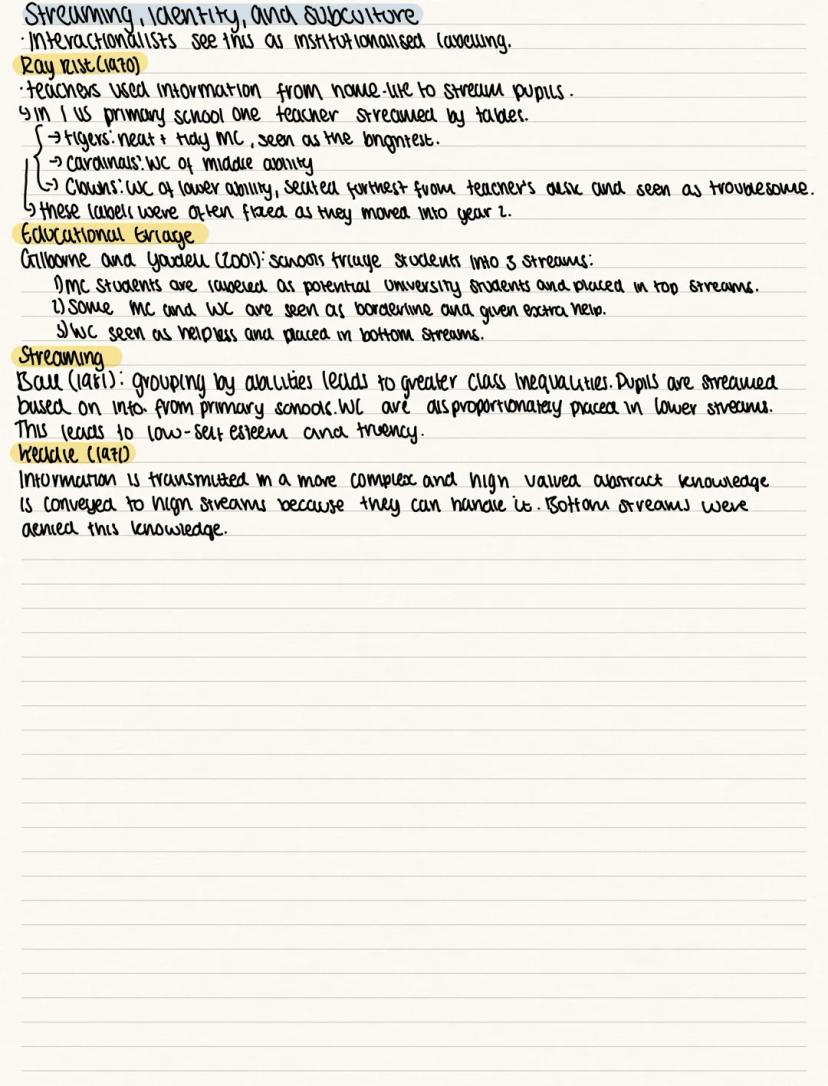 Streaming, Identity, and Subculture
· Interactionalists see this as institutionalised labelling.
Ray Rist (1970)
· teachers used information from home-life to stream pupils.
↳ in 1 US primary school one teacher streamed by tables.
→ tigers: neat + tidy MC, seen as the brightest.
→ Cardinals: WC of middle ability
→ Clowns: WC of lower ability, seated furthest from teacher's desk and seen as troublesome.
↳ these labels were often fixed as they moved into year 2.
Educational triage
Gillborne and Youdell (2001): schools triage students into 3 streams:
1) MC students are labeled as potential university students and placed in top streams.
2) Some MC and WC are seen as borderline and given extra help.
3) WC seen as helpless and placed in bottom streams.
Streaming
Ball (1981): grouping by abilities leads to greater class inequalities. Pupils are streamed
based on info. from primary schools. WC are disproportionately placed in lower streams.
This leads to low-self esteem and truency.
Keddie (1971)
Information is transmuted in a more complex and high valued abstract knowledge
is conveyed to high streams because they can handle it. Bottom streams were
denied this knowledge.